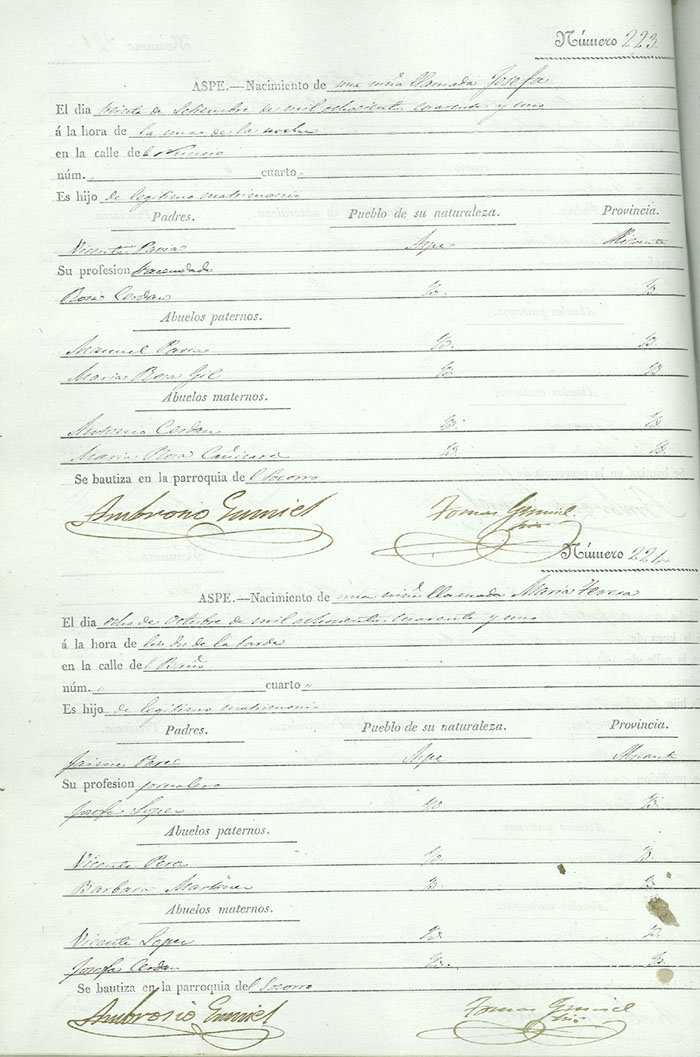 Número 223.
ASPE.—Nacimiento de una niña llamada Josefa
El dia veinte de Setiembre de mil ochocientos cuarenta y uno
á la hora de la una de la noche
en la calle de
núm. cuarto
Es hijo de legitimo matrimonio
Padres. Pueblo de su naturaleza. Provincia.
Vicente Aspe Alicante
Su profesion hacendado
Rosa Cerdan Yd. Yd.
Abuelos paternos.
Manuel Yd. Yd.
Maria Rosa Gil Yd. Yd.
Abuelos maternos.
Antonio Cerdan Yd. Yd.
Maria Rosa Yd. Yd.
Se bautiza en la parroquia del Socorro
Ambrosio Gumiel Tomas Gumiel
Srio
Número 224.
ASPE.—Nacimiento de una niña llamada Maria Teresa
El dia ocho de Octubre de mil ochocientos cuarenta y uno
á la hora de las dos de la tarde
en la calle del
núm. cuarto
Es hijo de legitimo matrimonio
Padres. Pueblo de su naturaleza. Provincia.
Jaime Perez Aspe Alicante
Su profesion jornalero
Josefa Lopez Yd. Yd.
Abuelos paternos.
Vicente Perez Yd. Yd.
Barbara Martinez Yd. Yd.
Abuelos maternos.
Vicente Lopez Yd. Yd.
Josefa Cerdan Yd. Yd.
Se bautiza en la parroquia del Socorro
Ambrosio Gumiel Tomas Gumiel
Srio